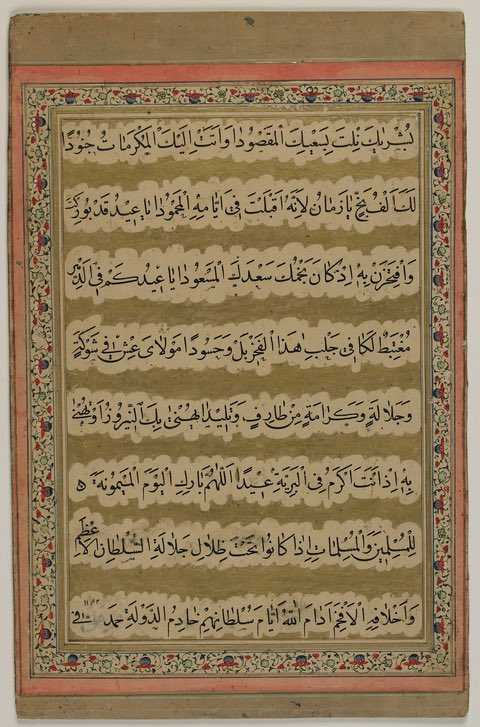 بشريك نلت بسعيك المقصودا واتت اليك المكرمات جنودا
لك الفخر يا زمان لانه اقبلت في ايامه المحمودا يا عيد قد بورك
وافتخرن به اذ كان نجمك سعدك المسعودا يا عيد كم في الدهر
مغتبط لكا في جلب هذا الفخر بل وحسودا مولاى عش في شوكة
وجلالة وكرامة من طارف وتليدا يهنئ بك النيروز او تهنى
به اذ انت اكرم في البرية عيدا اللهم بارك اليوم الميمونة
للمسلمين والمسلمات اذا كانوا تحت ظلال جلالة السلطان الاعظم
واخلافه الافخم ادام الله ايام سلطانهم خادم الدولة حمد